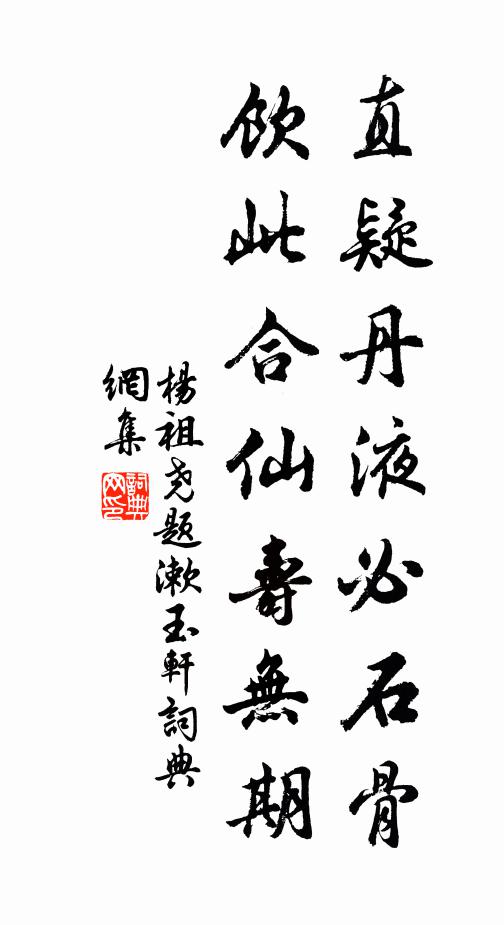 直疑丹液必石骨
飲此合仙壽無期
楊祖尧题漱玉軒詞典
網集
詞典
网印